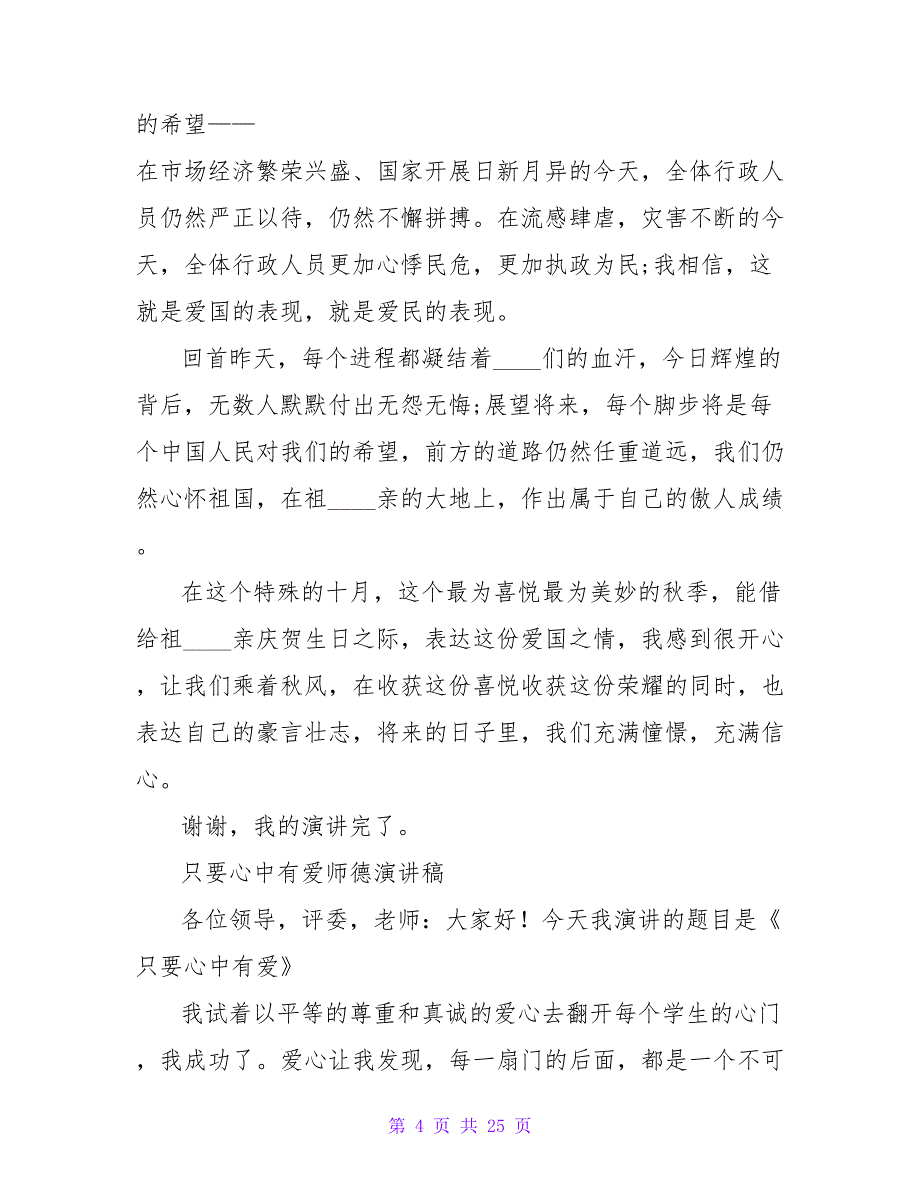 的希望——
在市场经济繁荣兴盛、国家开展日新月异的今天，全体行政人
员仍然严正以待，仍然不懈拼搏。在流感肆虐，灾害不断的今
天，全体行政人员更加心悸民危，更加执政为民;我相信，这
就是爱国的表现，就是爱民的表现。
回首昨天，每个进程都凝结着____们的血汗，今日辉煌的
背后，无数人默默付出无怨无悔;展望将来，每个脚步将是每
个中国人民对我们的希望，前方的道路仍然任重道远，我们仍
然心怀祖国，在祖____亲的大地上，作出属于自己的傲人成绩
。
在这个特殊的十月，这个最为喜悦最为美妙的秋季，能借
给祖____亲庆贺生日之际，表达这份爱国之情，我感到很开心
，让我们乘着秋风，在收获这份喜悦收获这份荣耀的同时，也
表达自己的豪言壮志，将来的日子里，我们充满憧憬，充满信
心。
谢谢，我的演讲完了。
只要心中有爱师德演讲稿
各位领导，评委，老师：大家好！今天我演讲的题目是《
只要心中有爱》
我试着以平等的尊重和真诚的爱心去翻开每个学生的心门
，我成功了。爱心让我发现，每一扇门的后面，都是一个不可
第 4 页 共 25 页